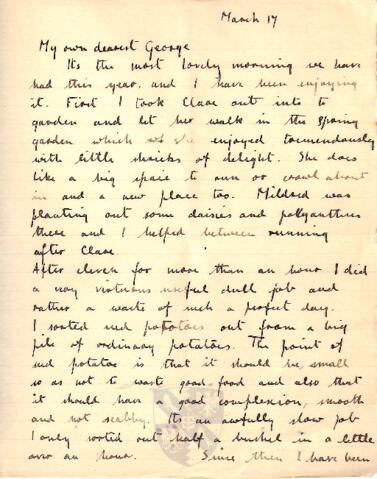 March 17
My own dearest George
Its the most lovely morning we have
had this year, and I have been enjoying
it. First I took Clare out into to
garden and let her walk in the spring
garden which she enjoyed tremendously
with little shrieks of delight. She does
like a big space to run or crawl about
in and a new place too. Mildred was
planting out some daisies and polyanthus
there and I helped between running
after Clare.
After eleven for more than an hour I did
a very virtuous useful dull job and
rather a waste of such a perfect day.
I sorted seed potatoes out from a big
pile of ordinary potatoes. The point of
seed potatoe is that it should be small
so as not to waste good food and also that
it should have a good complexion, smooth
and not scabby. Its an awfully slow job
I only sorted out half a bushel in a little
over an hour. Since then I have been